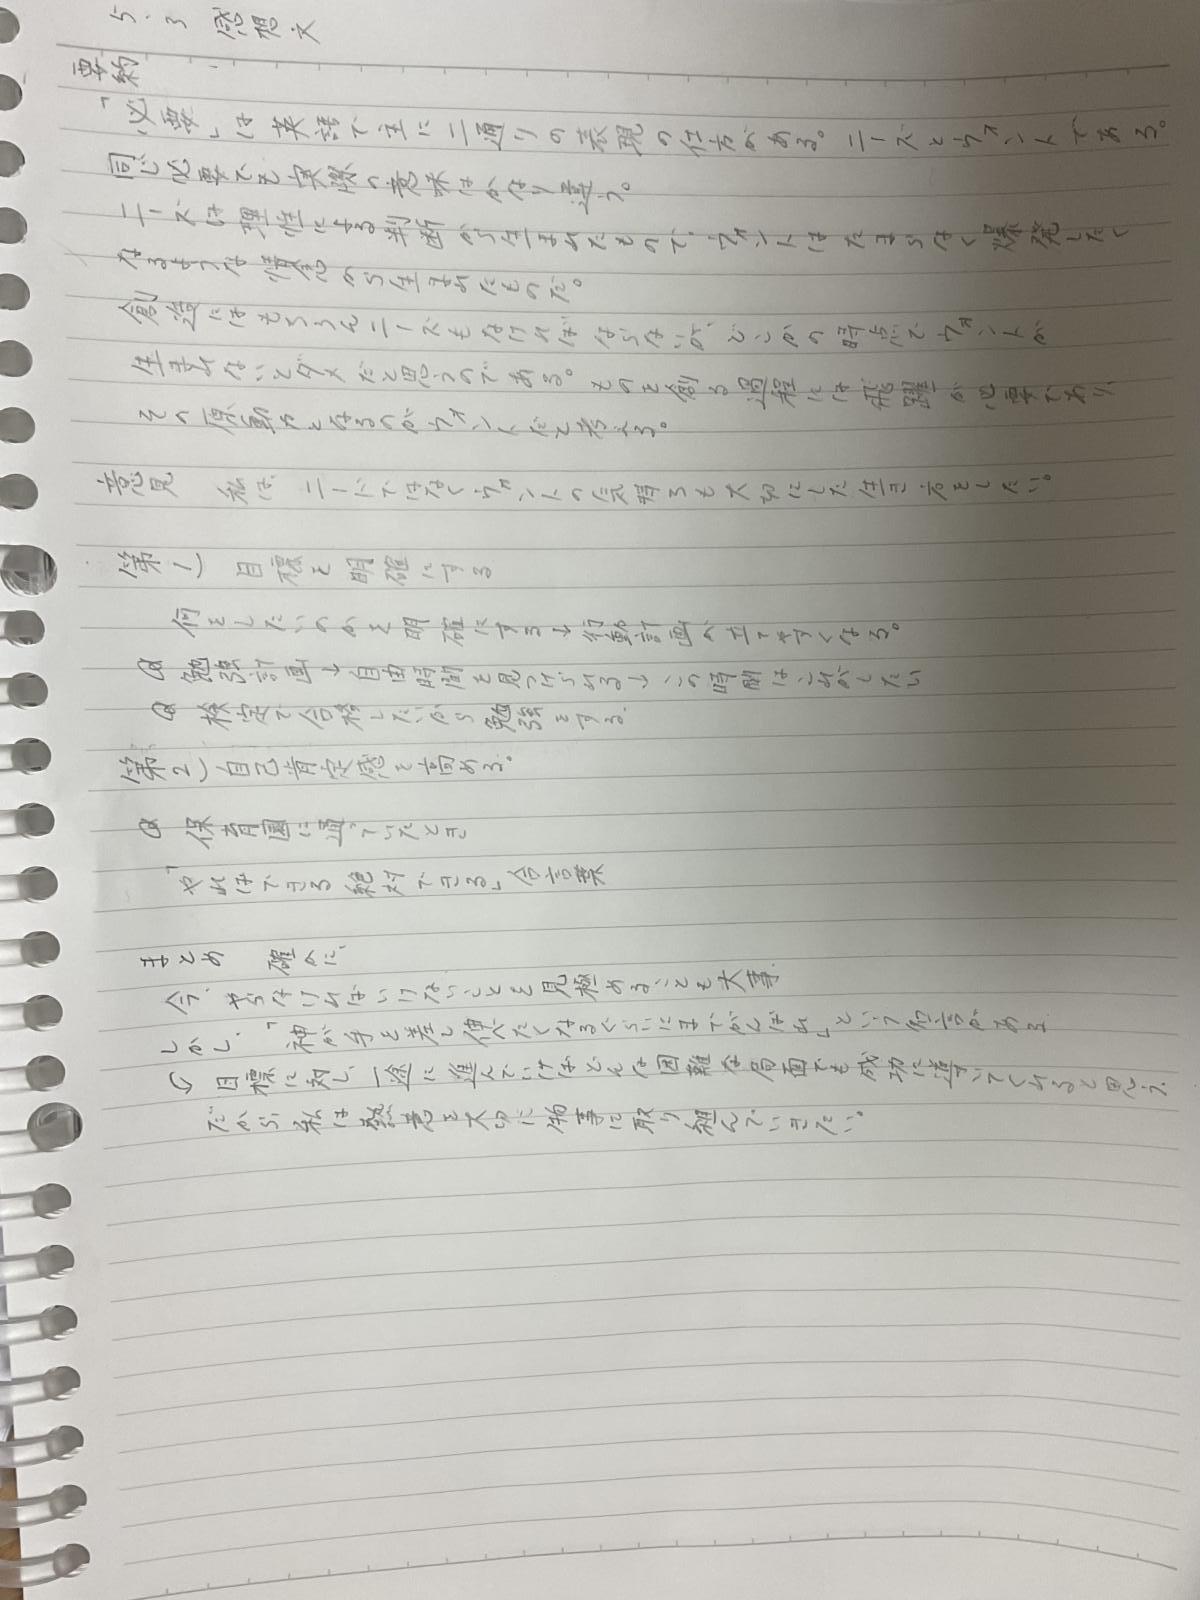 5.3 感想文
要約
「必要」は英語で主に二通りの表現の仕方がある。ニーズとウォントである。
同じ必要でも実際の意味はかなり違う。
ニーズは理性による判断から生まれたもので、ウォントはたまらなく爆発したく
なるような情念から生まれたものだ。
創造にはもちろんニーズもなければならないが、どこかの時点でウォントが
生まれないとダメだと思うのである。ものを創る過程には飛躍が必要であり、
その原動力となるのがウォントだと考える。
意見 私は、ニードではなくウォントの気持ちも大切にした生き方をしたい。
(第1) 目標を明確にする
何をしたいのかを明確にする→行動計画が立てやすくなる。
勉強計画→自由時間を見つけられる→この時間はこれがしたい
検定で合格したいから勉強をする。
(第2) 自己肯定感を高める。
保育園に通っていたとき
「やればできる絶対できる」合言葉
まとめ 確かに、
今、やらなければいけないことを見極めることも大事
しかし、「神が手を差し伸べたくなるぐらいにまでがんばれ」という名言がある
目標に対し、一途に進んでいけばどんな困難な局面でも成功に導いてくれると思う。
だから私は熱意を大切に物事に取り組んでいきたい。